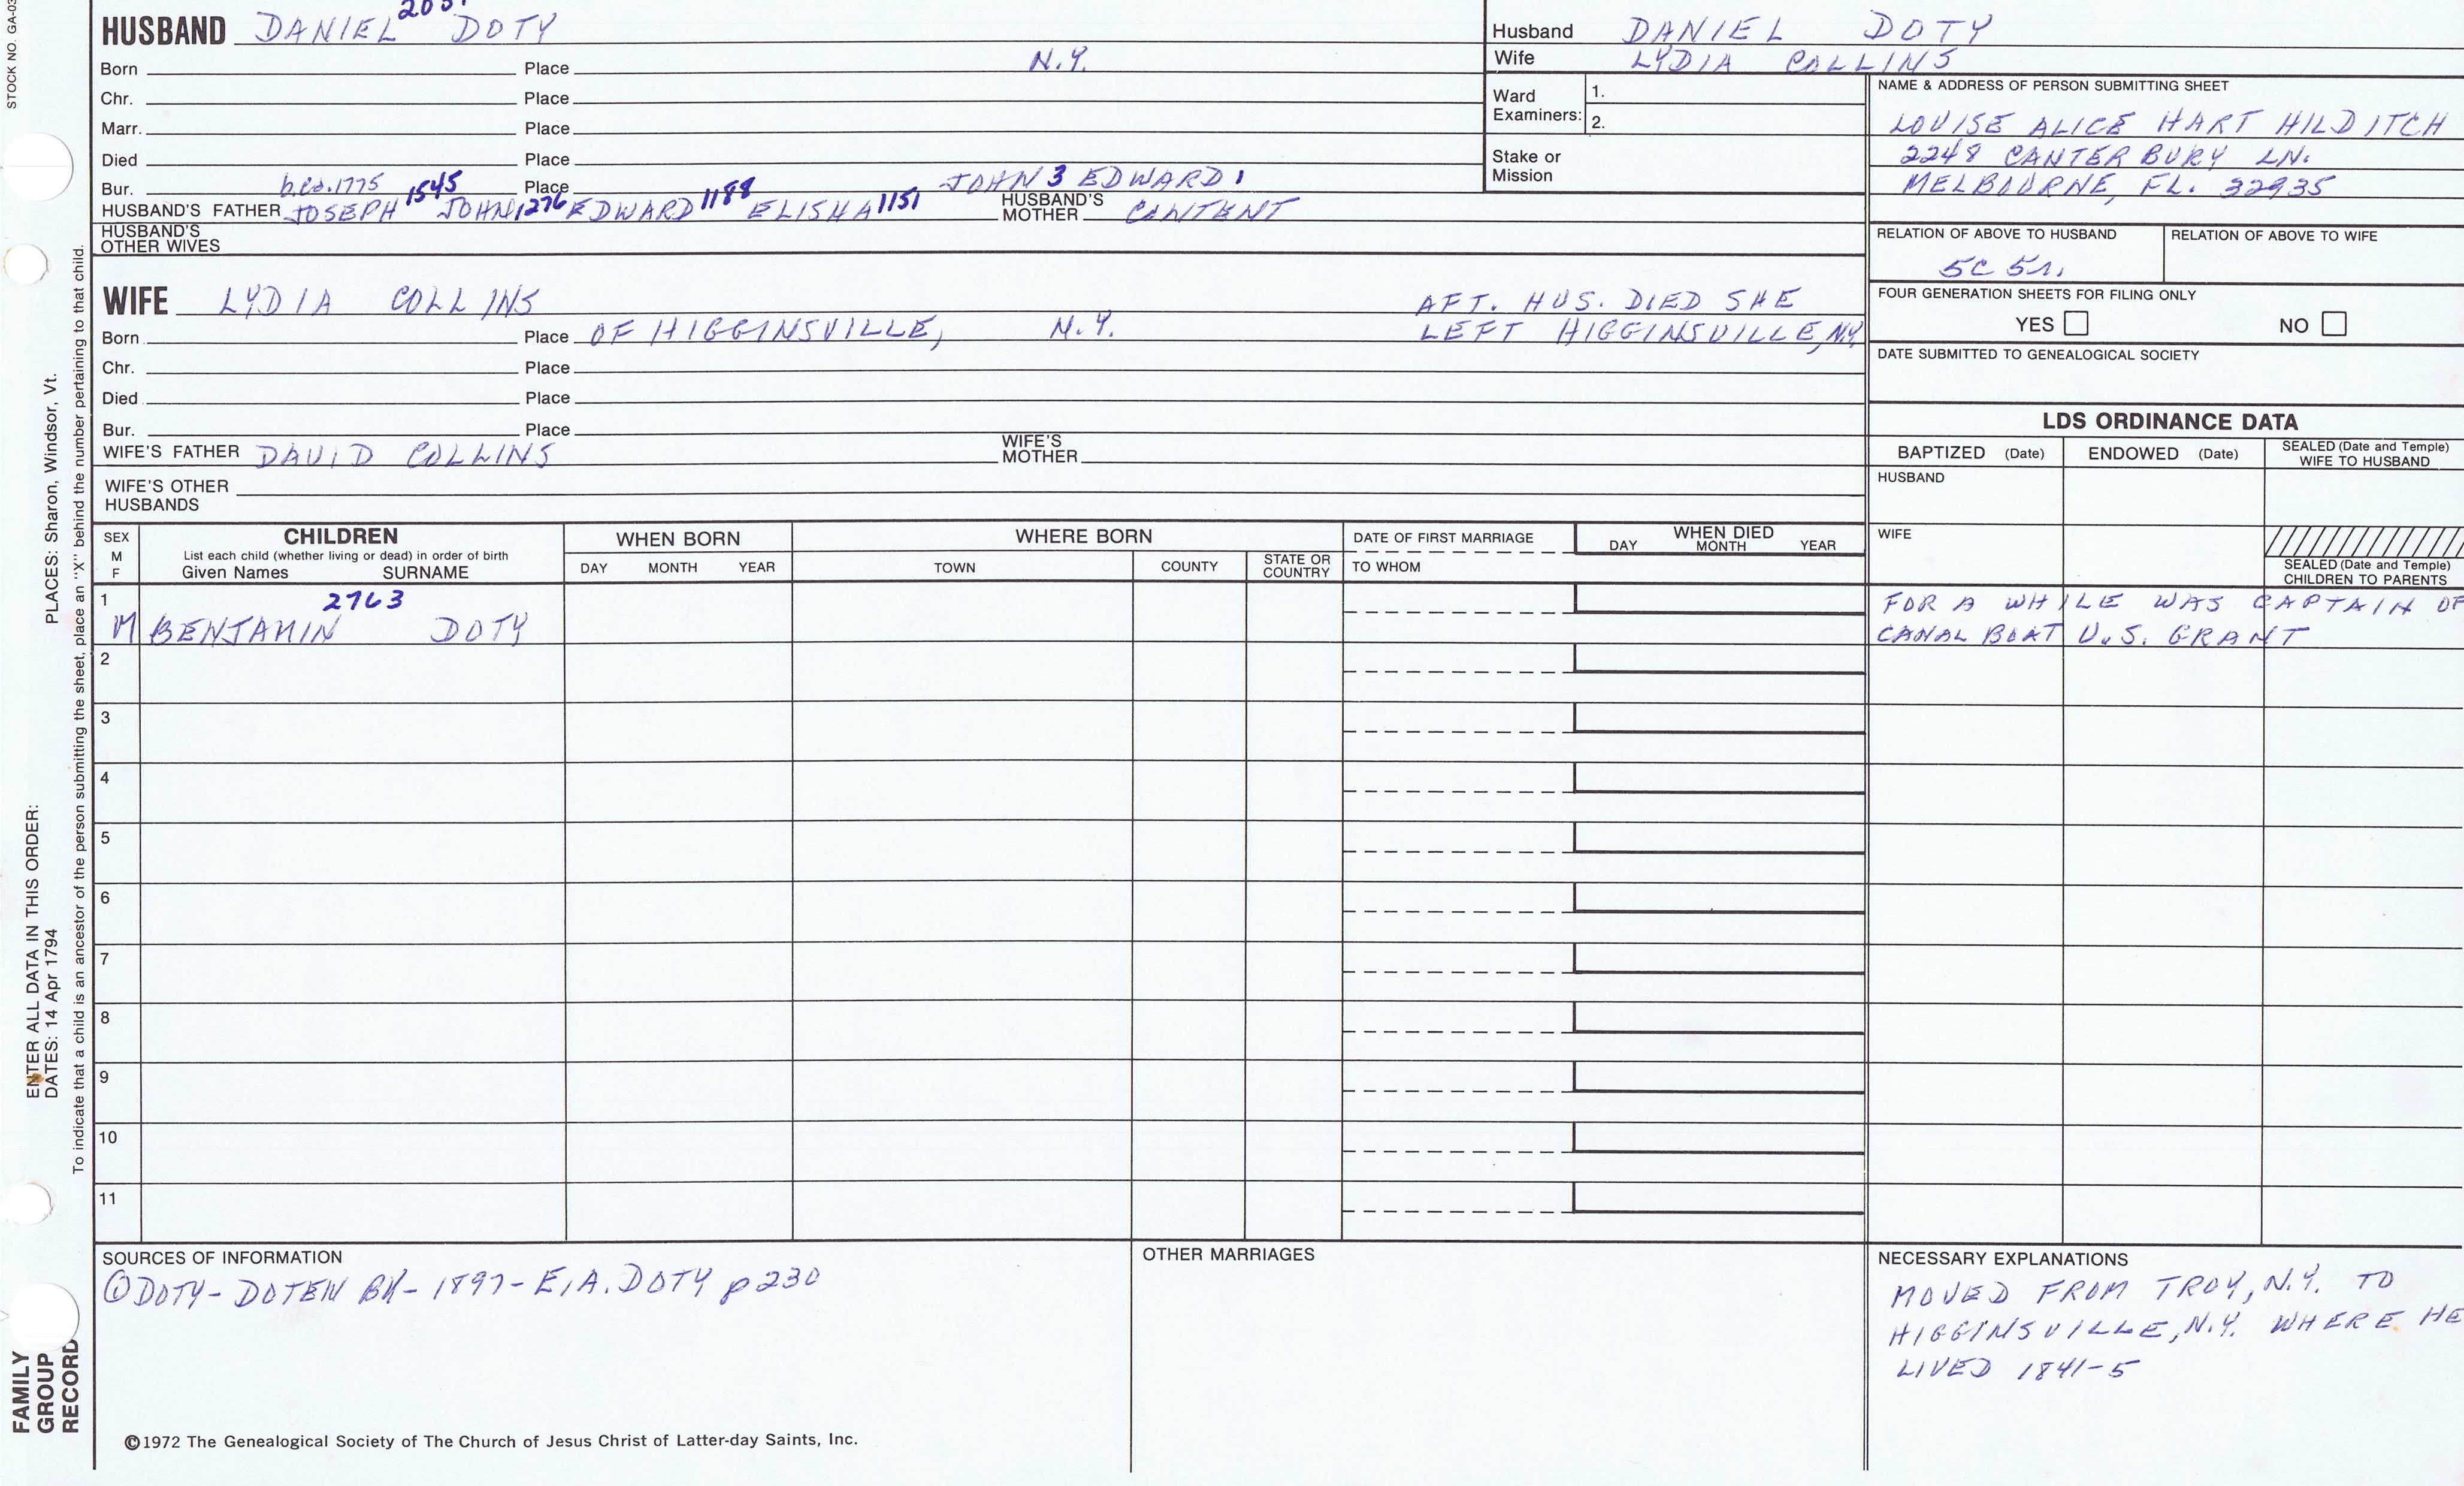 STOCK NO. GA-03
HUSBAND DANIEL DOTY
Born Place N.Y.
Chr. Place
Marr. Place
Died Place
Bur. Place
b.co.1775 1545 1188 JOHN 3 EDWARD 1
HUSBAND'S FATHER JOSEPH JOHN 1276 EDWARD ELISHA 1151 HUSBAND'S MOTHER CONTENT
HUSBAND'S OTHER WIVES
WIFE LYDIA COLLINS AFT. HUS. DIED SHE
Born Place OF HIGGINSVILLE, N.Y. LEFT HIGGINSVILLE, N.Y.
Chr. Place
Died Place
Bur. Place
WIFE'S FATHER DAVID COLLINS WIFE'S MOTHER
WIFE'S OTHER HUSBANDS
Husband DANIEL DOTY
Wife LYDIA COLLINS
Ward Examiners: 1.
2.
Stake or Mission
NAME & ADDRESS OF PERSON SUBMITTING SHEET
LOUISE ALICE HART HILDITCH
2248 CANTERBURY LN.
MELBOURNE, FL. 32935
RELATION OF ABOVE TO HUSBAND RELATION OF ABOVE TO WIFE
5C 5r.
FOUR GENERATION SHEETS FOR FILING ONLY
YES NO
DATE SUBMITTED TO GENEALOGICAL SOCIETY
LDS ORDINANCE DATA
BAPTIZED (Date) ENDOWED (Date) SEALED (Date and Temple) WIFE TO HUSBAND
HUSBAND
WIFE
SEALED (Date and Temple)
CHILDREN TO PARENTS
SEX M F
CHILDREN
List each child (whether living or dead) in order of birth
Given Names SURNAME
WHEN BORN
DAY MONTH YEAR
WHERE BORN
TOWN COUNTY STATE OR COUNTRY
DATE OF FIRST MARRIAGE
TO WHOM
WHEN DIED
DAY MONTH YEAR
1 2763 FOR A WHILE WAS CAPTAIN OF
M BENJAMIN DOTY CANAL BOAT U.S. GRANT
2
3
4
5
6
7
8
9
10
11
SOURCES OF INFORMATION
① DOTY-DOTEN BK-1897-E.A. DOTY p 230
OTHER MARRIAGES
NECESSARY EXPLANATIONS
MOVED FROM TROY, N.Y. TO
HIGGINSVILLE, N.Y. WHERE HE
LIVED 1841-5
©1972 The Genealogical Society of The Church of Jesus Christ of Latter-day Saints, Inc.
FAMILY
GROUP
RECORD
ENTER ALL DATA IN THIS ORDER:
DATES: 14 Apr 1794 PLACES: Sharon, Windsor, Vt.
To indicate that a child is an ancestor of the person submitting the sheet, place an "X" behind the number pertaining to that child.